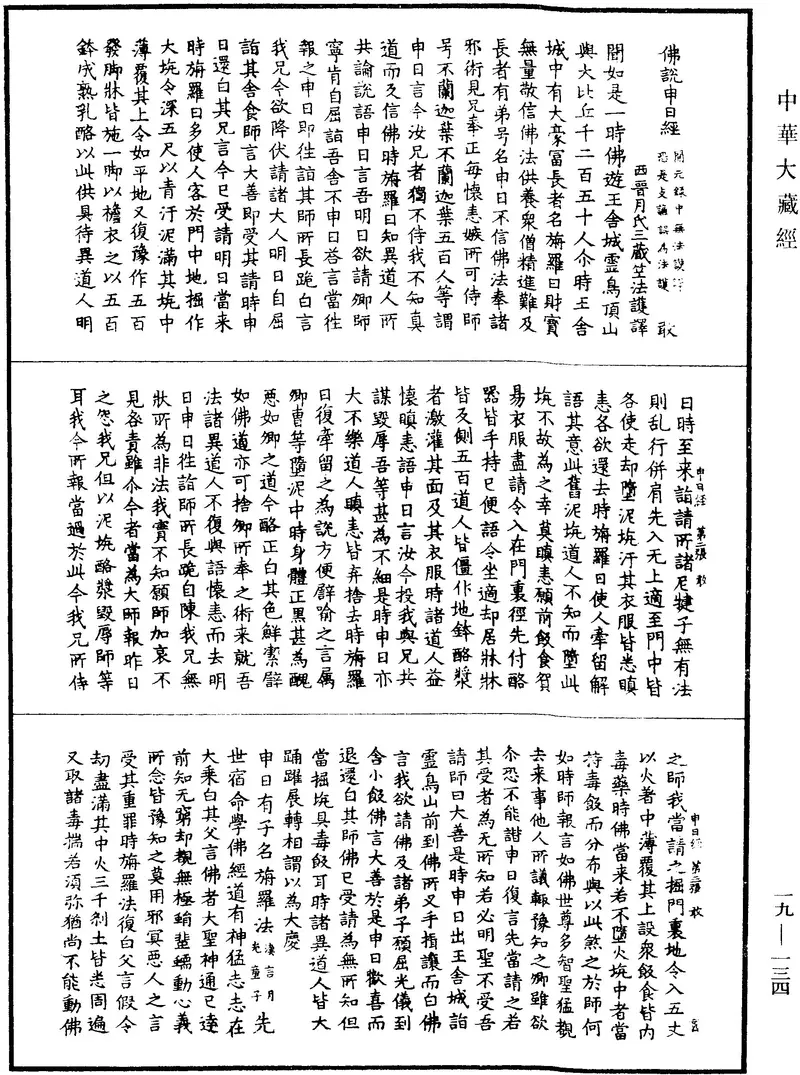 中華大藏經
佛說申日經 開元錄中無法護譯恐是支謙誤為法護 敢
西晉月氏三藏竺法護譯
聞如是一時佛遊王舍城靈鳥頂山
與大比丘千二百五十人俱尒時王舍
城中有大豪冨長者名旃羅日財寶
無量敬信佛法供養衆僧精進難及
長者有弟号名申日不信佛法奉諸
邪術見兄奉正每懷恚嫉所可侍師
号不蘭迦葉不蘭迦葉五百人等謂
道而及信佛時旃羅日知異道人所
申日言今汝兄者獨不待我不知真
共論說語申日言吾明日欲請卿師
寧肯自屈詣吾舍不申日荅言當往
報之申日即往詣其師所長跪白言
我兄今欲降伏請諸大人明日自屈
詣其舍食師言大善即受其請時申
日還白其兄言今已受請明日當来
時旃羅日多使人客於門中地掘作
大坑令深五尺以青汙泥滿其坑中
薄覆其上令如平地又復豫作五百
發脚牀皆施一脚以檐衣之以五百
鉢成熟乳酪以此供具待異道人明
申日經 第二張 敢
日時至来詣請所諸尼犍子無有法
則乱行併肩先入无上適至門中皆
各使走却墮泥坑汙其衣服皆恚瞋
恚各欲還去時旃羅日使人牽留解
語其意此舊泥坑道人不知而墮此
坑不故為之幸莫瞋恚願前飯食貿
易衣服盡請令入在門裏徑先付酪
器皆手持已便語令坐適却居牀牀
皆及側五百道人皆僵仆地鉢酪漿
者激灌其面及其衣服時諸道人益
懷瞋恚語申日言汝今投我與兄共
謀毀辱吾等甚為不細是時申日亦
大不樂道人瞋恚皆弃捨去時旃羅
日復牽留之為說方便譬喻之言属
卿曹等墮泥中時身體正黒甚為醜
惡如卿之道今酪正白其色鮮潔譬
如佛道亦可捨卿所奉之術来就吾
法諸異道人不復與語懷恚而去明
日申日往詣師所長跪自陳我兄無
狀所為非法我實不知願師加哀不
見咎責雖尒今者當為大師報昨日
之怨我兄但以泥坑酪漿毀辱師等
耳我今所報當過於此今我兄所侍
申日經 第三張 敢
之師我當請之掘門裏地令入五丈
以火著中薄覆其上設衆飯食皆内
毒藥時佛當来若不墮火坑中者當
持毒飯而分布與以此煞之於師何
如時師報言如佛世尊多智聖猛覩
去来事他人所議輙豫知之卿雖欲
尒恐不能諧申日復言先當請之若
其受者為无所知若必明聖不受吾
請師曰大善是時申日出王舍城詣
靈鳥山前到佛所叉手揖讓而白佛
言我欲請佛及諸弟子願屈光儀到
舍小飯佛言大善於是申日歡喜而
退還白其師佛已受請為無所知但
當掘坑具毒飯耳時諸異道人皆大
踊躍展轉相謂以為大慶
申日有子名旃羅法 漢言月光童子 先
世宿命學佛經道有神猛志志在
大乘白其父言佛者大聖神通已達
前知无窮却覩無極蜎蜚蠕動心義
所念皆豫知之莫用邪冥惡人之言
受其重罪時旃羅法復白父言假令
劫盡滿其中火三千剎土皆悉周遍
又取諸毒揣若須弥猶尚不能動佛
一九—一三四